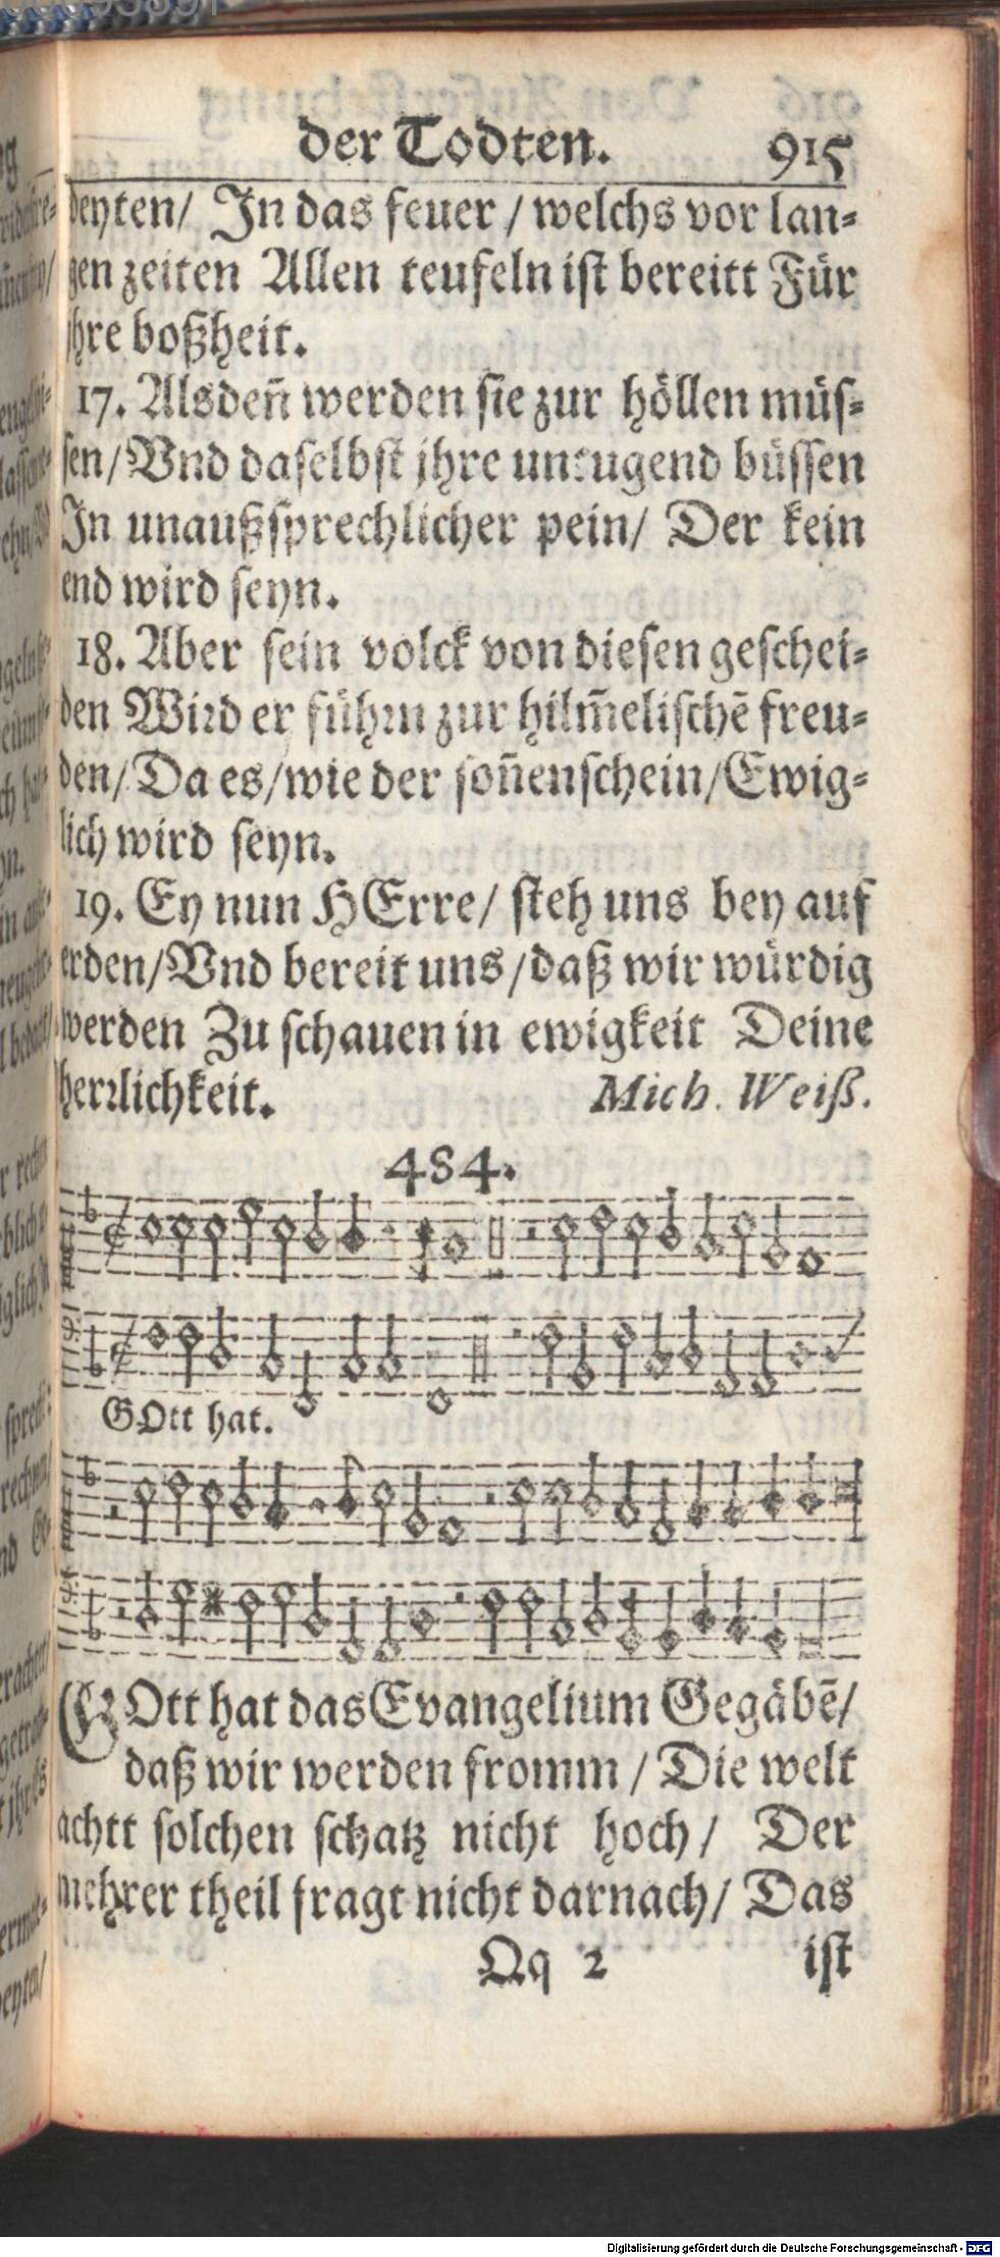 der Todten. 915
deyten/ In das feuer / welchs vor lan-
gen zeiten Allen teufeln ist bereitt Für
ihre boßheit.
17. Alsdeñ werden sie zur höllen müs-
sen/ Vnd daselbst jhre untugend büssen
In unaußsprechlicher pein/ Der kein
end wird seyn.
18. Aber sein volck von diesen geschei-
den Wird er führn zur hilm̃elischẽ freu-
den/ Da es/ wie der soñenschein/ Ewig-
lich wird seyn.
19. Ey nun HErre/ steh uns bey auf
erden/ Vnd bereit uns / daß wir würdig
werden Zu schauen in ewigkeit Deine
herrlichkeit. Mich. Weiß.
484.
GOtt hat.
GOtt hat das Evangelium Gegäbẽ/
daß wir werden fromm / Die welt
achtt solchen schatz nicht hoch/ Der
mehrer theil fragt nicht darnach/ Das
Qq 2 ist
Digitalisierung gefördert durch die Deutsche Forschungsgemeinschaft - DFG